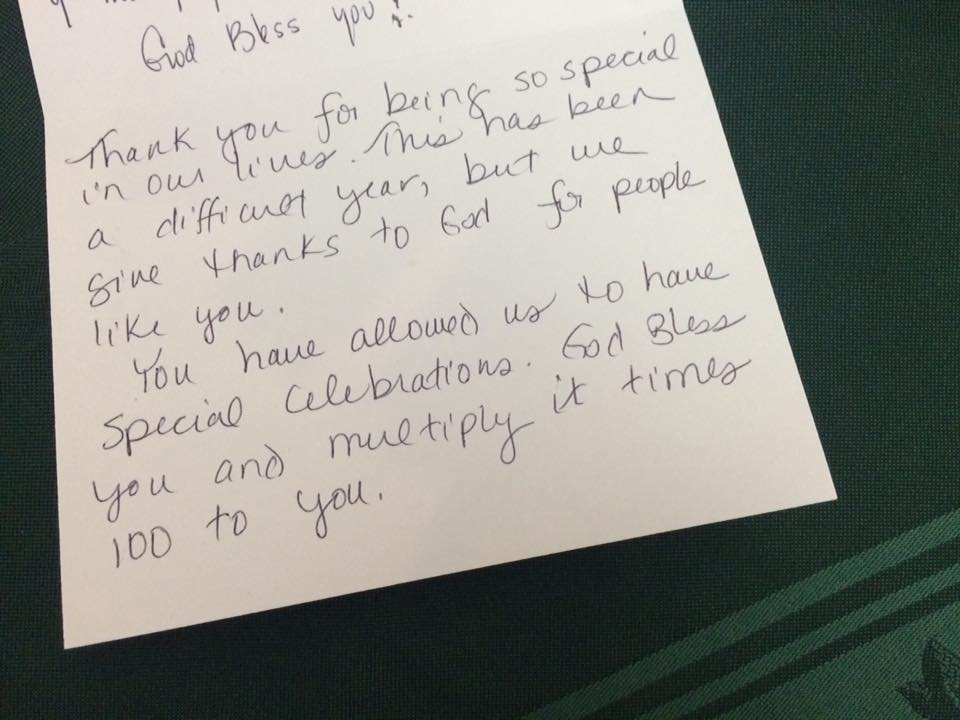 God Bless you!
Thank you for being so special
in our lives. This has been
a difficult year, but we
give thanks to God for people
like you.
You have allowed us to have
special celebrations. God Bless
you and multiply it times
100 to you.